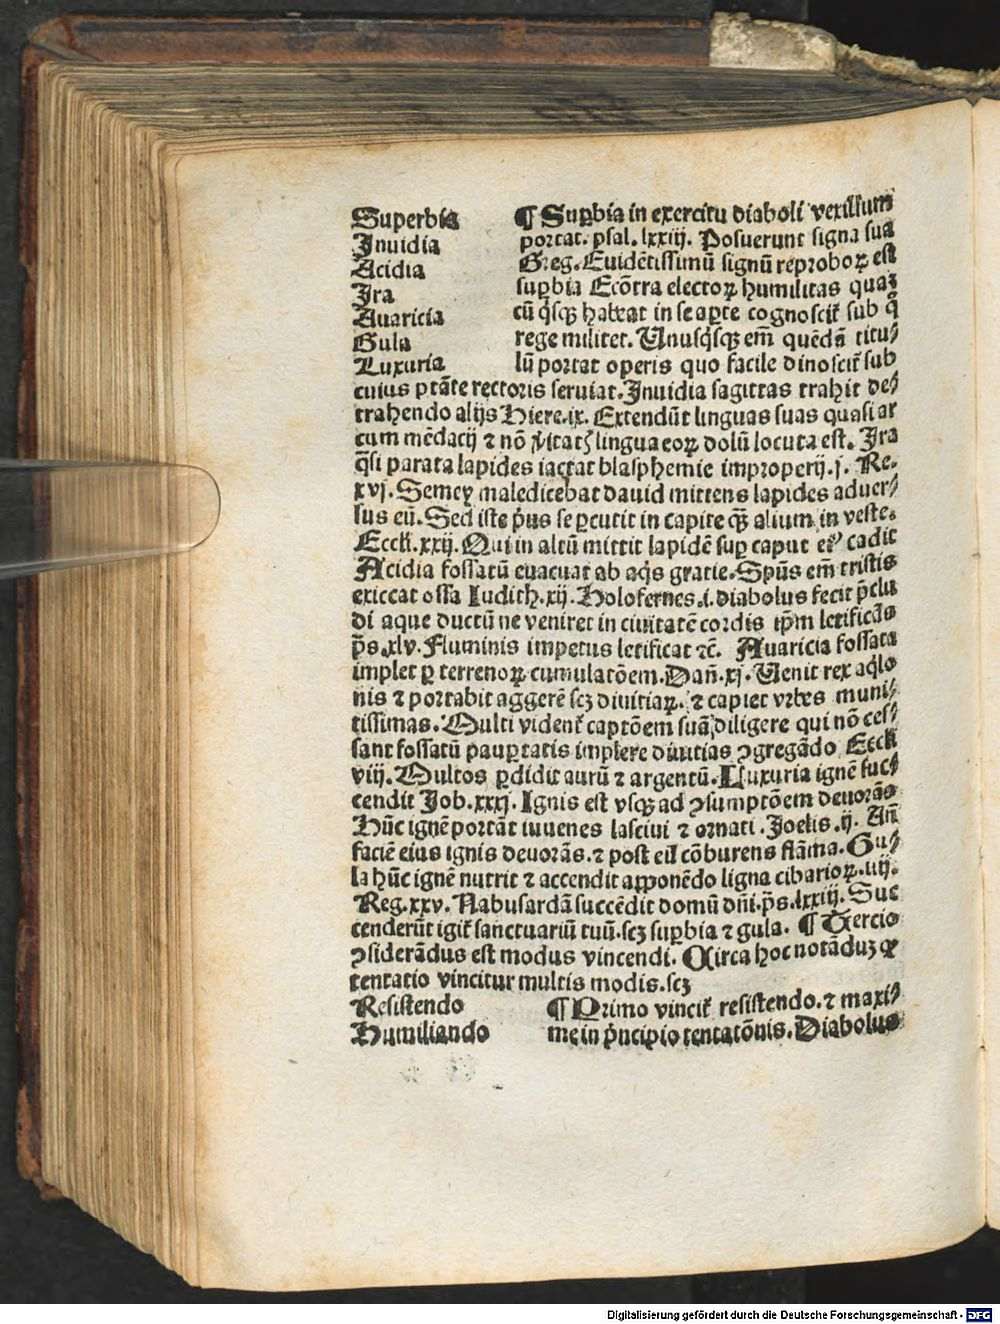 Superbia
Inuidia
Acidia
Ira
Auaricia
Gula
Luxuria
¶ Supbia in exercitu diaboli vexillum
portat. psal. lxxiij. Posuerunt signa sua
Greg. Euidētissimū signū reproboꝝ est
supbia Ecōtra electoꝝ humilitas quaꝫ
cū q̇sqꝫ habeat in se apte cognoscit̄ sub q̊
rege militet. Unusq̇sqꝫ em̄ quēdā titu⸗
lū portat operis quo facile dinoscit̄ sub
cuius ptāte rectoris seruiat. Inuidia sagittas trahit de⸗
trahendo alijs Hiere. ix. Extendūt linguas suas quasi ar
cum mēdacij ⁊ nō lingua eoꝝ dolū locuta est. Ira
q̄si parata lapides iactat blasphemie improperij. j. Re.
xvj. Semey maledicebat dauid mittens lapides aduer⸗
sus eū. Sed iste pus se pcutit in capite qꝫ alium in veste.
Eccli. xxij. Qui in altū mittit lapidē sup caput eiꝰ cadit
Acidia fossatū euacuat ab aq̇s gratie. Spūs em̄ tristis
exiccat ossa Iudith. xij. Holofernes .i. diabolus fecit pclu
di aque ductū ne veniret in ciuitatē cordis ipm letificās
ps. xlv. Fluminis impetus letificat ⁊c̄. Auaricia fossata
implet ꝑ terrenoꝝ cumulatōem. Dan̄. xj. Uenit rex aq̇lo
nis ⁊ portabit aggerē scꝫ diuitiaꝝ. ⁊ capiet vrbes muni⸗
tissimas. Multi vident̄ captōem suā diligere qui nō ces⸗
sant fossatū paupertatis implere diuitias ꝯgregādo Eccli
viij. Multos ꝑdidit aurū ⁊ argentū. Luxuria ignē suc⸗
cendit Job. xxxj. Ignis est vsqꝫ ad ꝯsumptōem deuorās
Hūc ignē portāt iuuenes lasciui ⁊ ornati. Joelis. ij. An̄
faciē eius ignis deuorās. ⁊ post eū cōburens flāma. Gu⸗
la hūc ignē nutrit ⁊ accendit apponēdo ligna cibarioꝝ. iiij.
Reg. xxv. Nabusardā succēdit domū dn̄i. ps. lxxiij. Suc
cenderūt igit̄ sanctuariū tuū. scꝫ supbia ⁊ gula. ¶ Tercio
ꝯsiderādus est modus vincendi. Circa hoc notāduꝫ ꝙ
tentatio vincitur multis modis. scꝫ
Resistendo
Humiliando
¶ Primo vincit̄ resistendo. ⁊ maxi⸗
me in pncipio tentatōnis. Diabolus
Digitalisierung gefördert durch die Deutsche Forschungsgemeinschaft - DFG